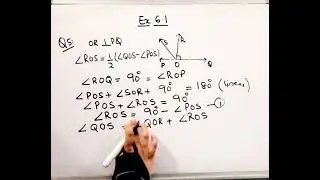 Ex 6.1
Q5: OR ⊥ PQ
∠ROS = 1/2 (∠QOS - ∠POS)
S R
P O Q
∠ROQ = 90° = ∠ROP
∠POS + ∠SOR + 90° = 180° (linear
∠POS + ∠ROS = 90°
∠ROS = 90° - ∠POS —①
∠QOS = ∠QOR + ∠ROS